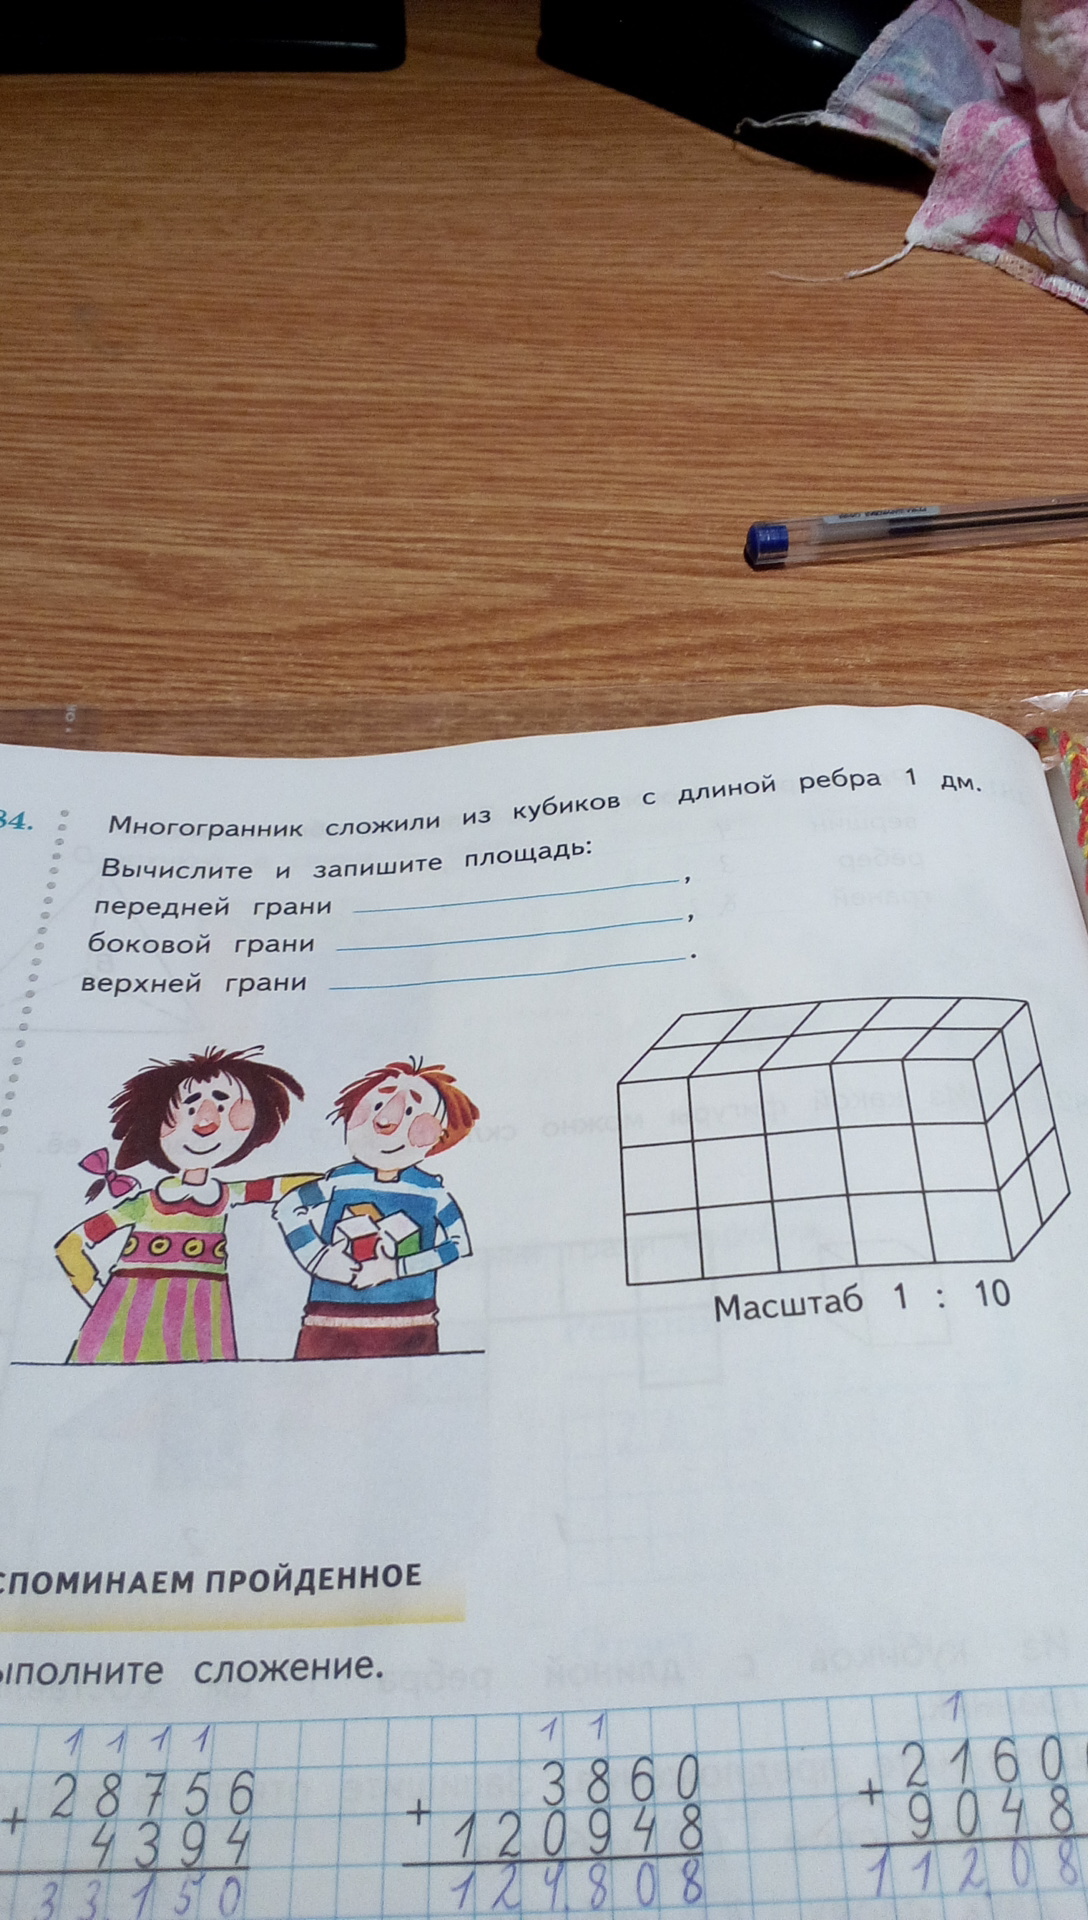 34.
Многогранник сложили из кубиков с длиной ребра 1 дм.
Вычислите и запишите площадь:
передней грани ,
боковой грани ,
верхней грани .
Масштаб 1 : 10
СПОМИНАЕМ ПРОЙДЕННОЕ
ыполните сложение.
1 1 1 1
28756
+
4394
33150
1 1
3860
+
120948
124808
1
2160
+
9048
11208